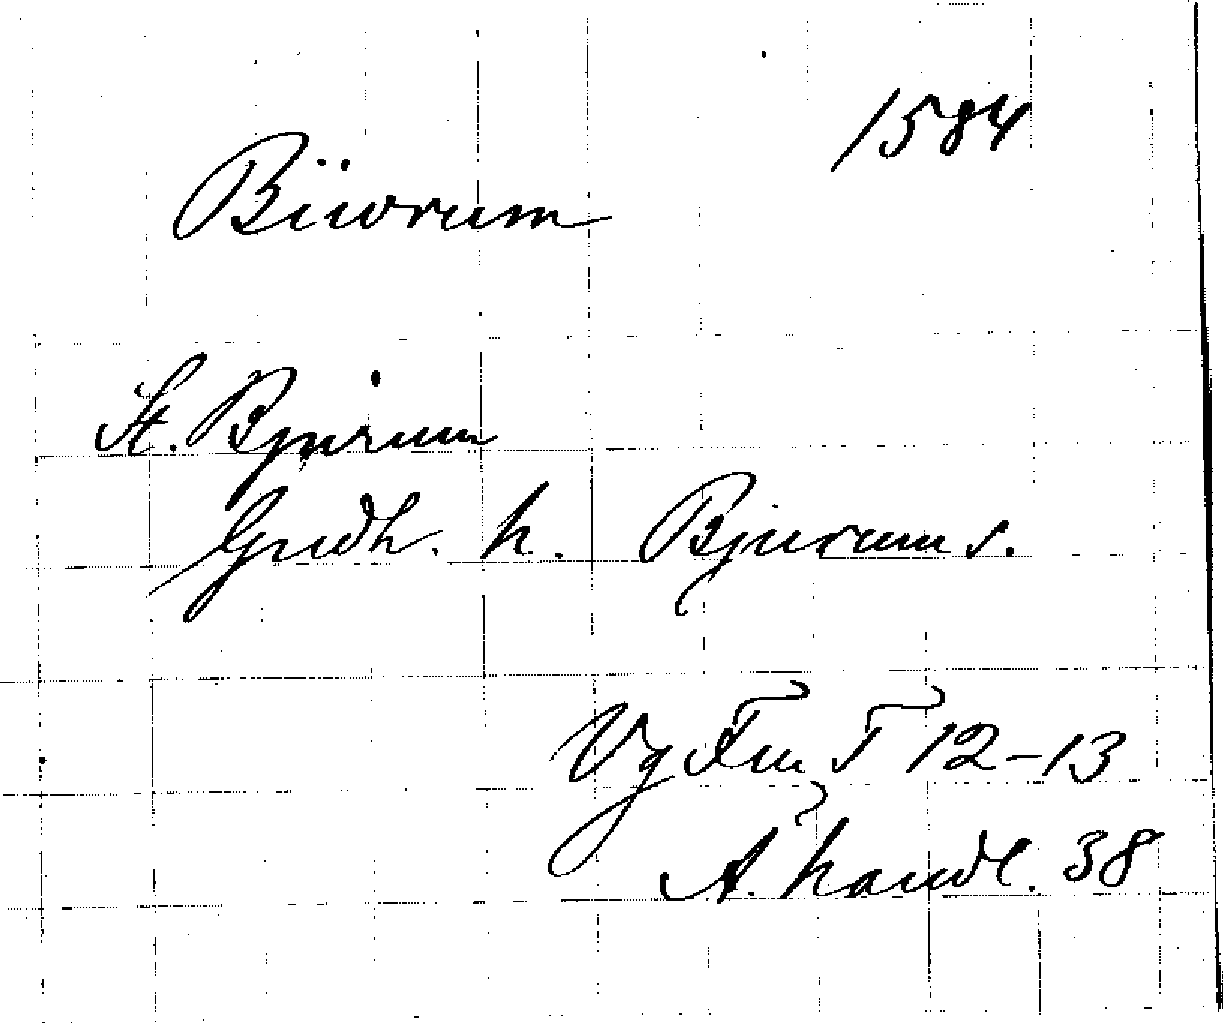 1584
Biiorum
St. Bjurum
Gudh. h. Bjurum s.
Vg Fm T 12-13
A. handl. 38